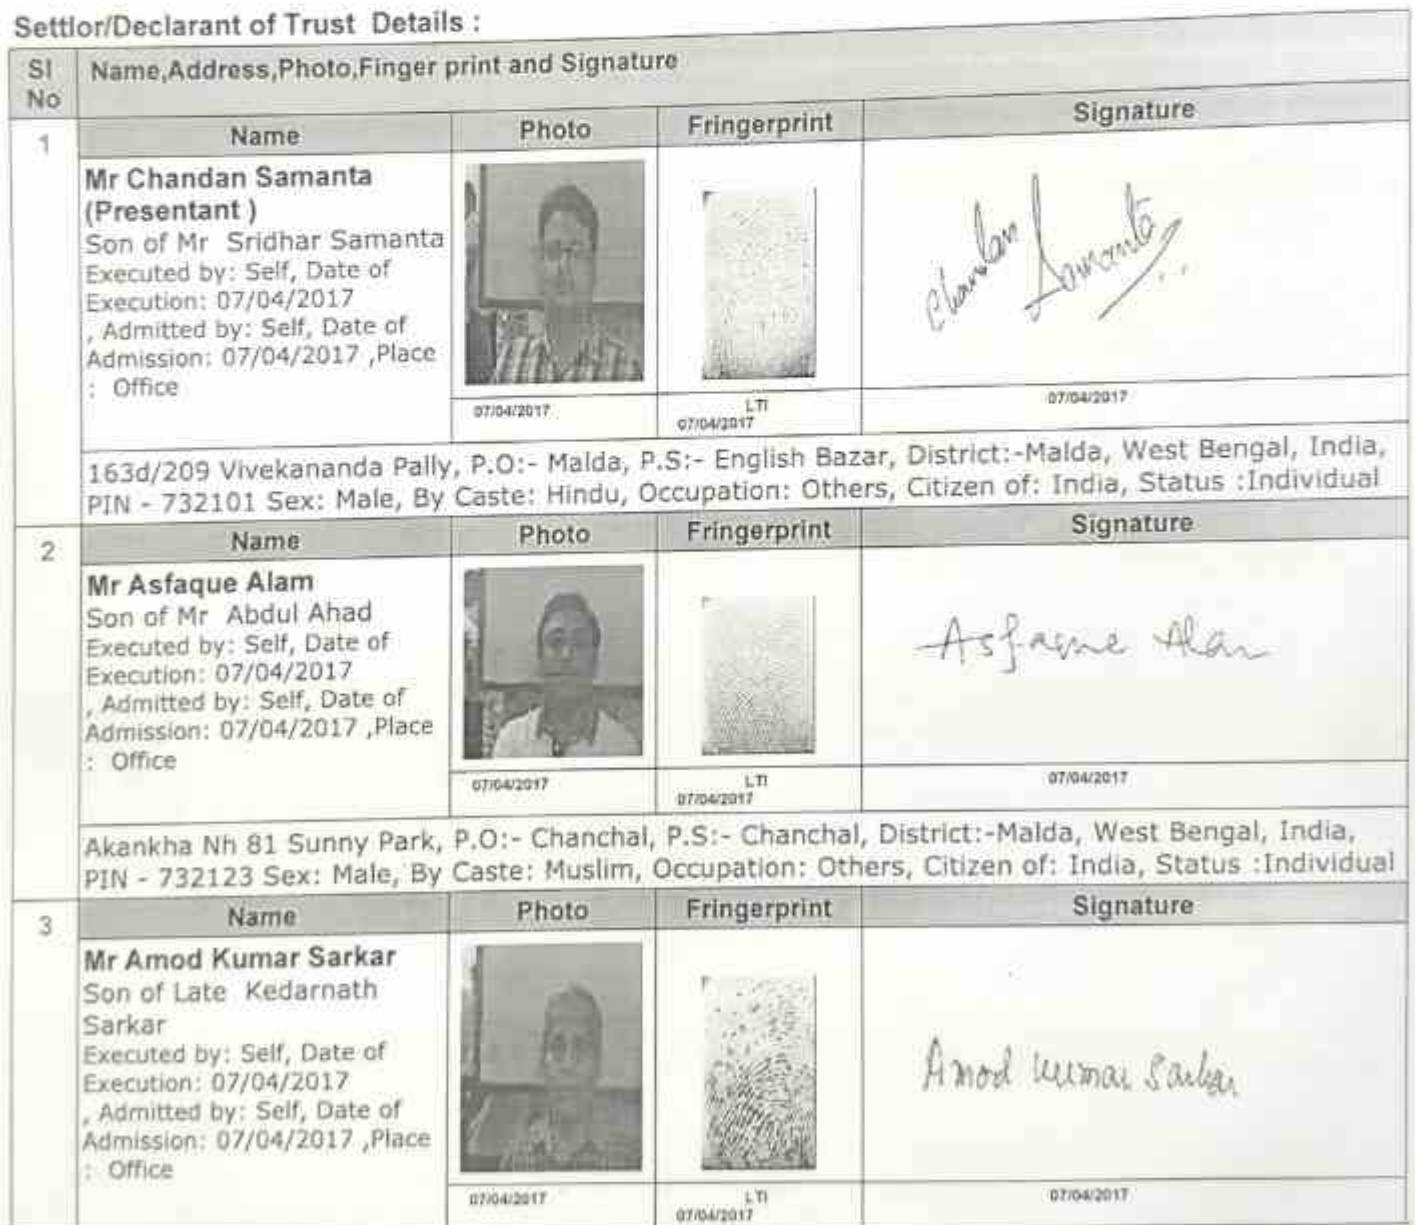 Settlor/Declarant of Trust Details :
Sl No
Name,Address,Photo,Finger print and Signature
1
Name
Photo
Fringerprint
Signature
Mr Chandan Samanta
(Presentant )
Son of Mr Sridhar Samanta
Executed by: Self, Date of
Execution: 07/04/2017
, Admitted by: Self, Date of
Admission: 07/04/2017 ,Place
: Office
Chandan Samanta
07/04/2017
LTI
07/04/2017
07/04/2017
163d/209 Vivekananda Pally, P.O:- Malda, P.S:- English Bazar, District:-Malda, West Bengal, India,
PIN - 732101 Sex: Male, By Caste: Hindu, Occupation: Others, Citizen of: India, Status :Individual
2
Name
Photo
Fringerprint
Signature
Mr Asfaque Alam
Son of Mr Abdul Ahad
Executed by: Self, Date of
Execution: 07/04/2017
, Admitted by: Self, Date of
Admission: 07/04/2017 ,Place
: Office
Asfaque Alam
07/04/2017
LTI
07/04/2017
07/04/2017
Akankha Nh 81 Sunny Park, P.O:- Chanchal, P.S:- Chanchal, District:-Malda, West Bengal, India,
PIN - 732123 Sex: Male, By Caste: Muslim, Occupation: Others, Citizen of: India, Status :Individual
3
Name
Photo
Fringerprint
Signature
Mr Amod Kumar Sarkar
Son of Late Kedarnath
Sarkar
Executed by: Self, Date of
Execution: 07/04/2017
, Admitted by: Self, Date of
Admission: 07/04/2017 ,Place
: Office
Amod Kumar Sarkar
07/04/2017
LTI
07/04/2017
07/04/2017